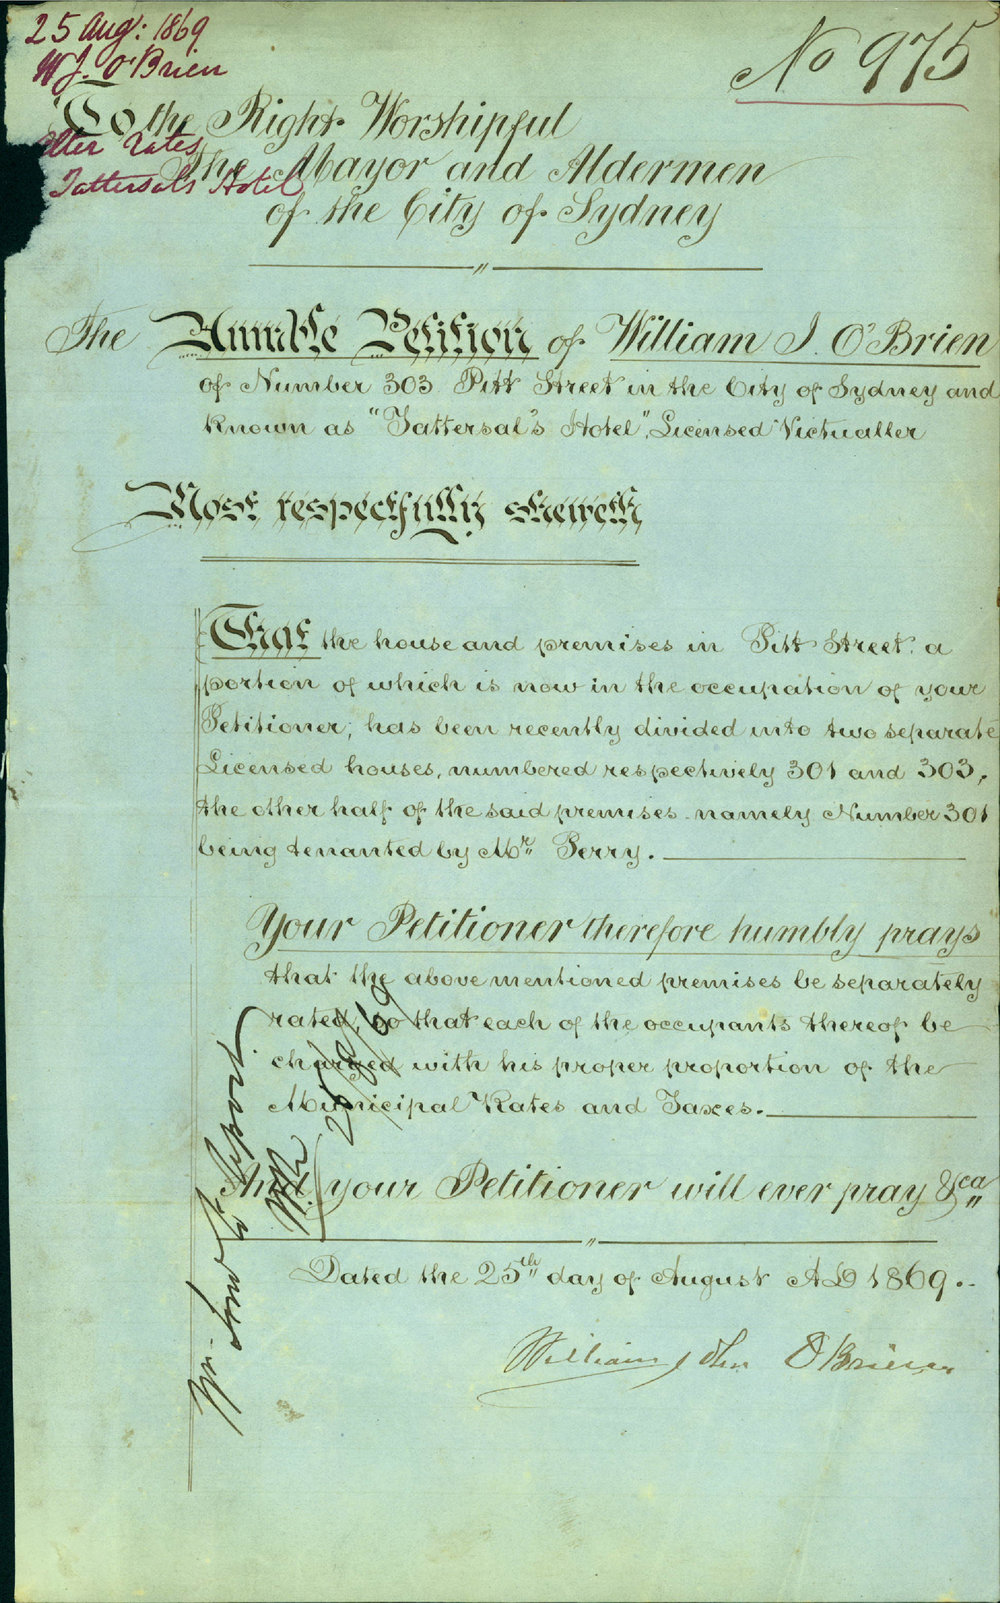 25 Aug: 1869
W J. O'Brien
No 975
To the Right Worshipful
alter rates
The Mayor and Aldermen
Tattersal's Hotel
of the City of Sydney
The Humble Petition of William J. O'Brien
of Number 303 Pitt Street in the City of Sydney and
known as "Tattersal's Hotel", Licensed Victualler
Most respectfully sheweth
That the house and premises in Pitt Street a
portion of which is now in the occupation of your
Petitioner, has been recently divided into two separate
Licensed houses, numbered respectively 301 and 303,
the other half of the said premises namely Number 301
being tenanted by Mr Perry.
Your Petitioner therefore humbly prays
that the above mentioned premises be separately
rated, so that each of the occupants thereof be
charged with his proper proportion of the
Municipal Rates and Taxes.
And your Petitioner will ever pray &ca
Dated the 25th day of August AD 1869.
William John O'Brien
Mr to report